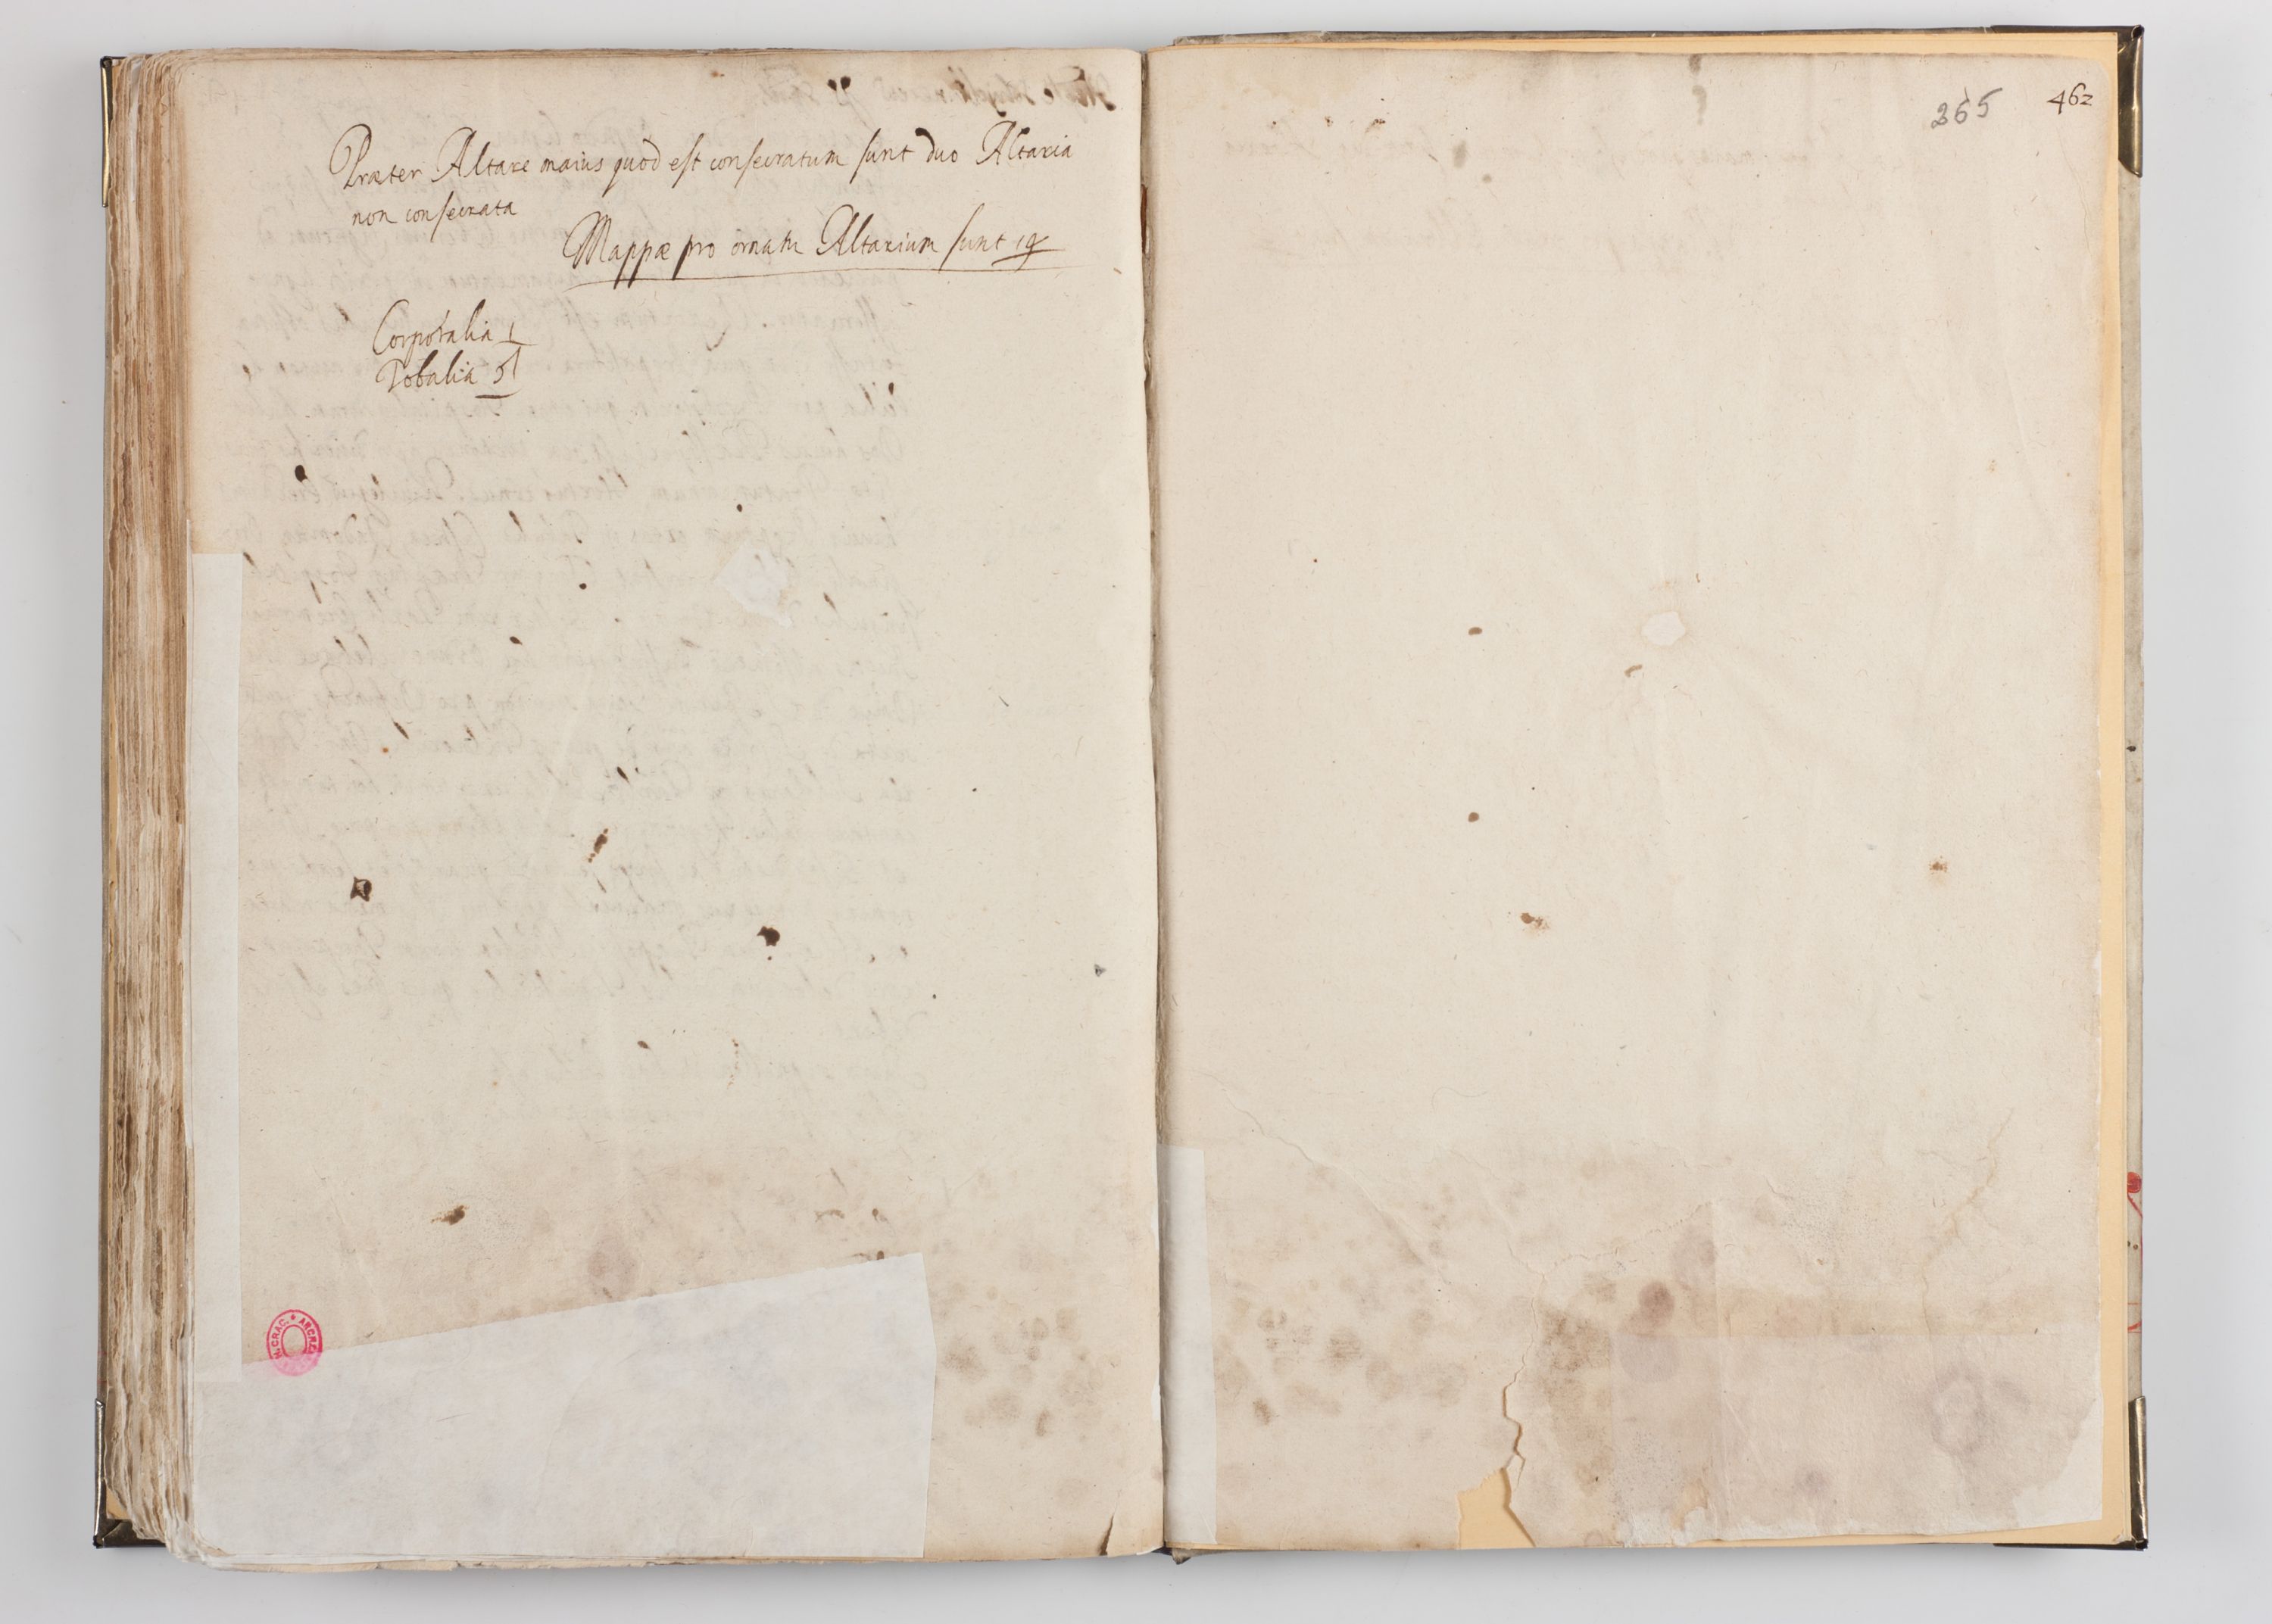 Præter Altare maius quod est consecratum sunt duo Altaria
non consecrata
Mappæ pro ornatu Altarium sunt
Corporalia 1
Tobalia 5
265
462